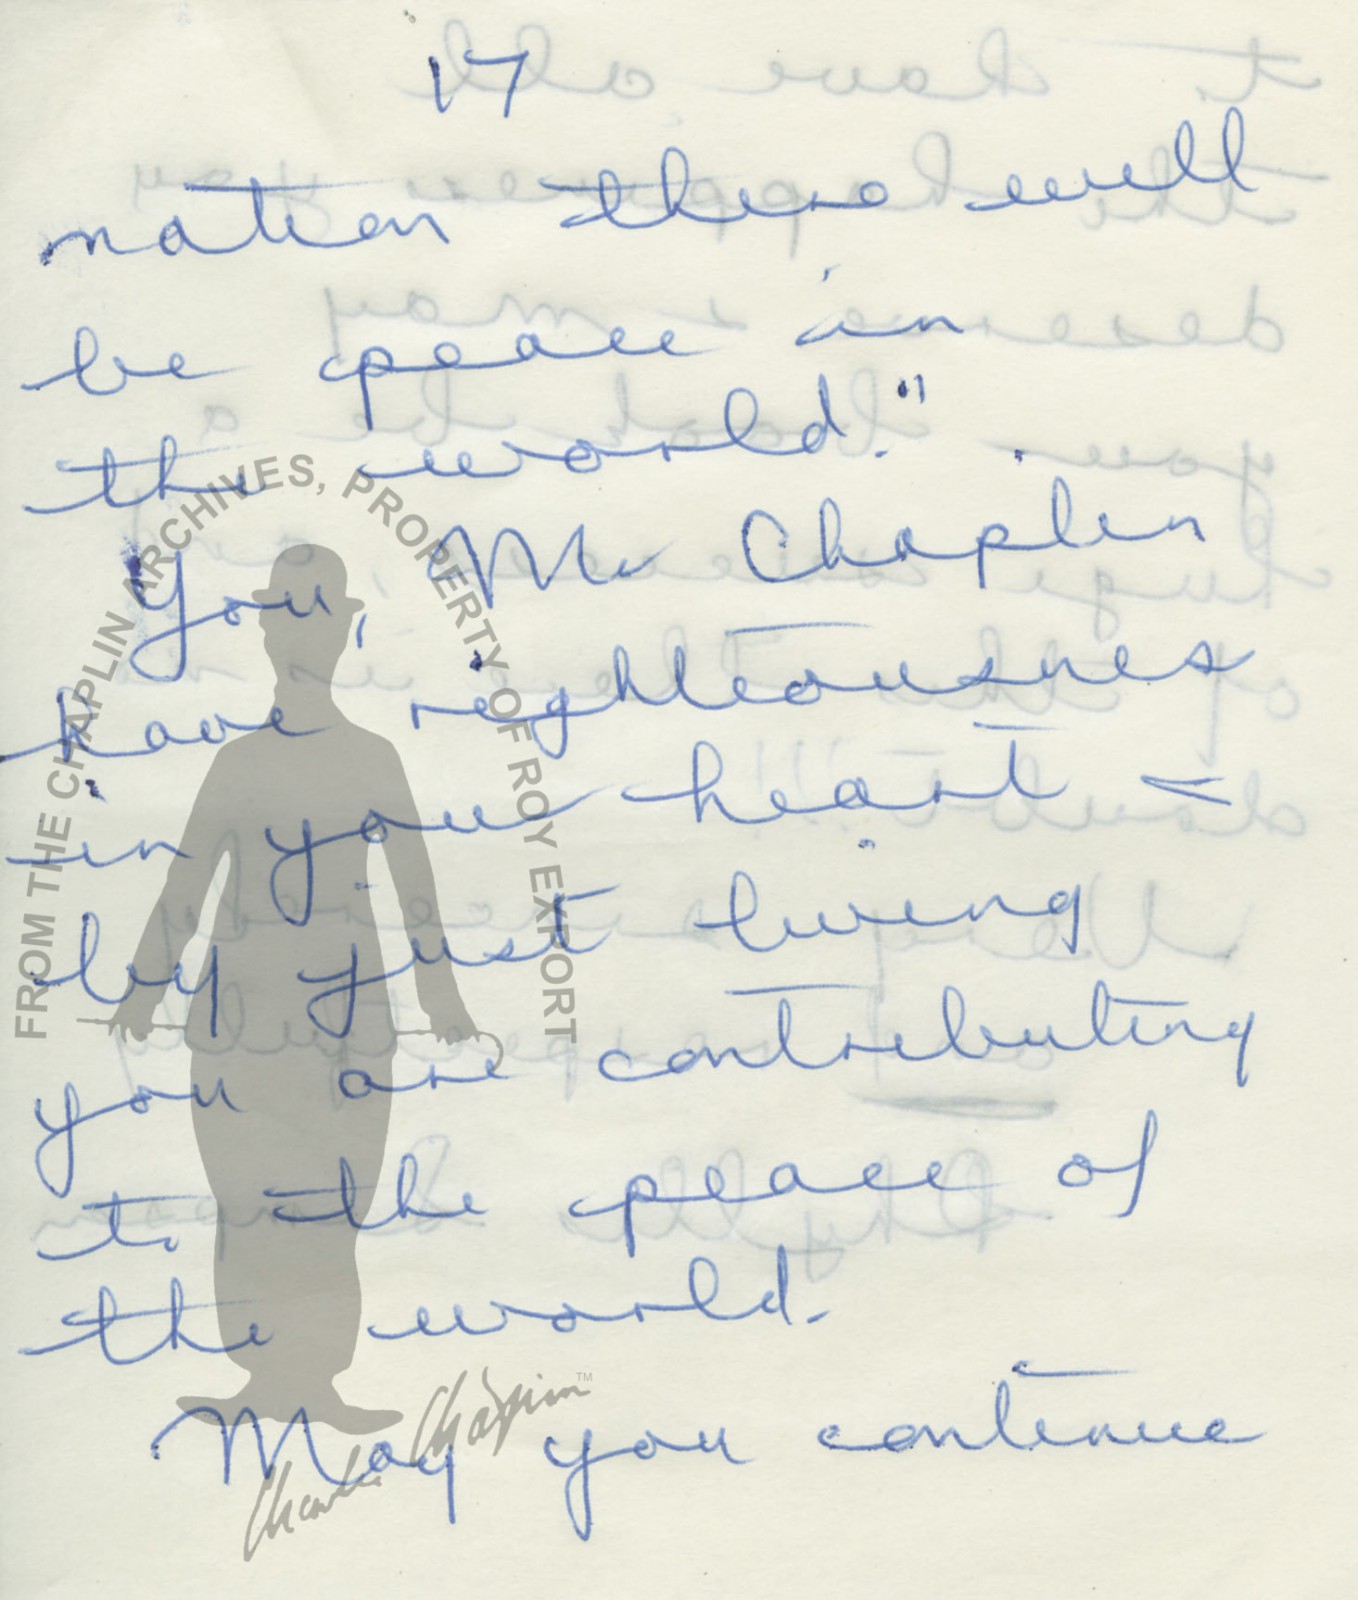 17
nation there will
be peace in
the world."
You, Mr Chaplin
have righteousness
in your heart –
by just living
you are contributing
to the peace of
the world.
May you continue
FROM THE CHAPLIN ARCHIVES, PROPERTY OF ROY EXPORT
Charlie Chaplin TM